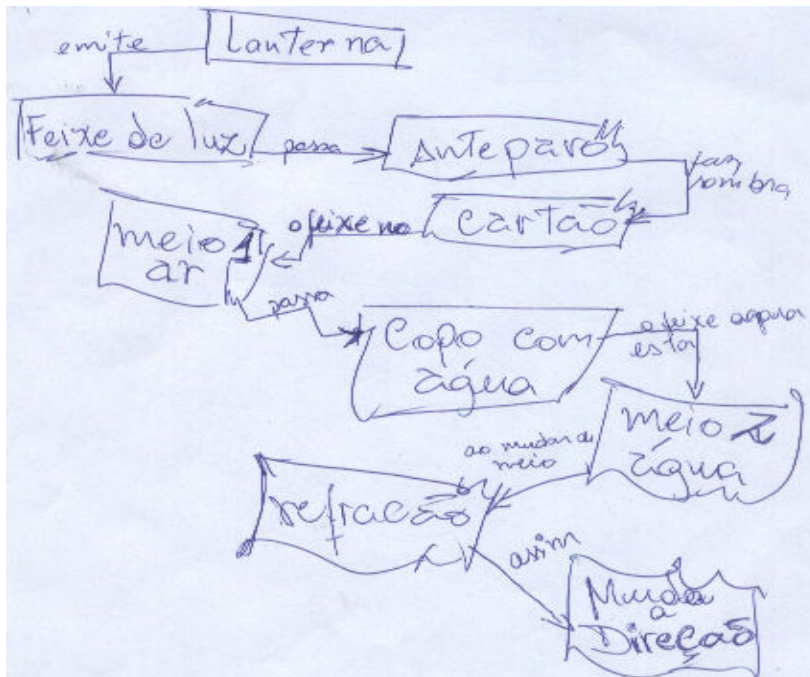 emite
Lanterna
Feixe de luz
passa
Anteparo
faz
sombra
Cartão
o feixe no
meio 1
ar
passa
Copo com
água
o feixe agora
está
meio 2
água
ao mudar de
meio
refração
assim
Muda
a
Direção